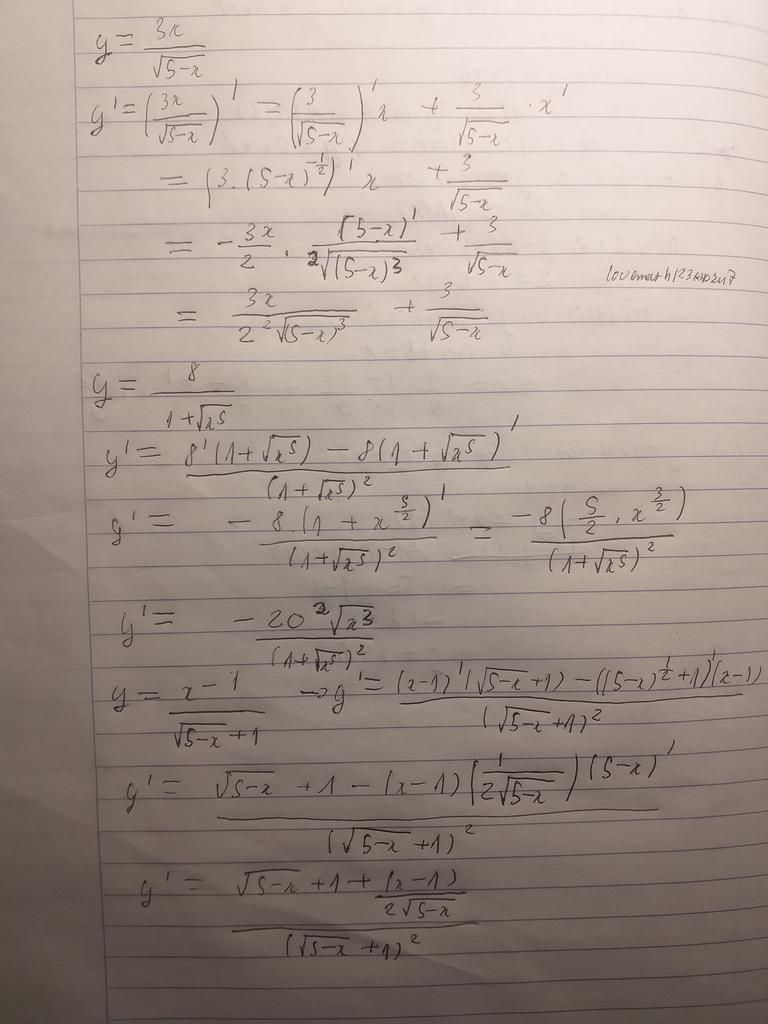 y = 3x / √(5-x)
y' = (3x / √(5-x))' = (3 / √(5-x))' x + 3 / √(5-x) · x'
= (3·(5-x)^(-1/2))' x + 3 / √(5-x)
= - 3x/2 · (5-x)' / ²√((5-x)³) + 3 / √(5-x)
= 3x / (2 ²√((5-x)³)) + 3 / √(5-x)
y = 8 / (1+√(x⁵))
y' = (8'(1+√(x⁵)) - 8(1+√(x⁵))') / (1+√(x⁵))²
y' = - 8·(1 + x^(5/2))' / (1+√(x⁵))² = -8(5/2 · x^(3/2)) / (1+√(x⁵))²
y' = - 20 ²√(x³) / (1+√(x⁵))²
y = (x-1) / (√(5-x)+1) → y' = ((x-1)'(√(5-x)+1) - ((5-x)^(1/2)+1)'(x-1)) / (√(5-x)+1)²
y' = (√(5-x) + 1 - (x-1)(1 / (2√(5-x)))(5-x)') / (√(5-x)+1)²
y' = (√(5-x) + 1 + (x-1) / (2√(5-x))) / (√(5-x)+1)²